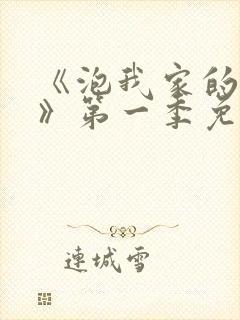 《泡我家的
》第一季免
連城雪